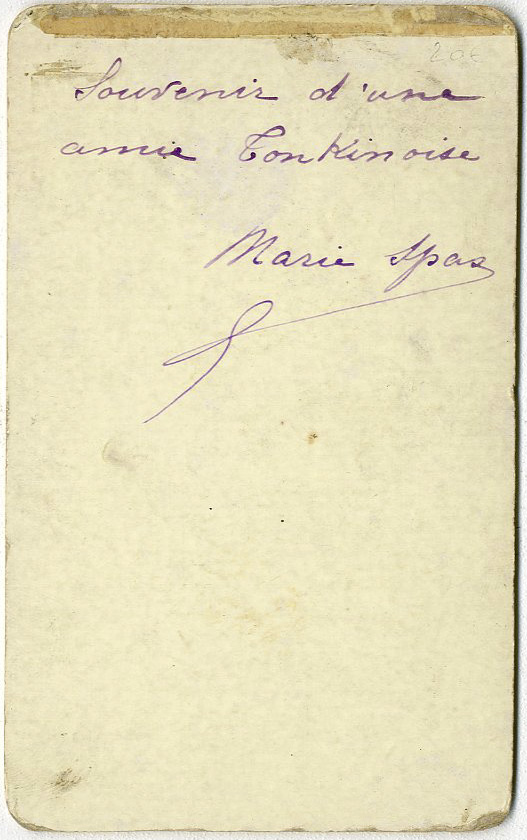 20€
Souvenir d'une
amie Tonkinoise
Marie Spas